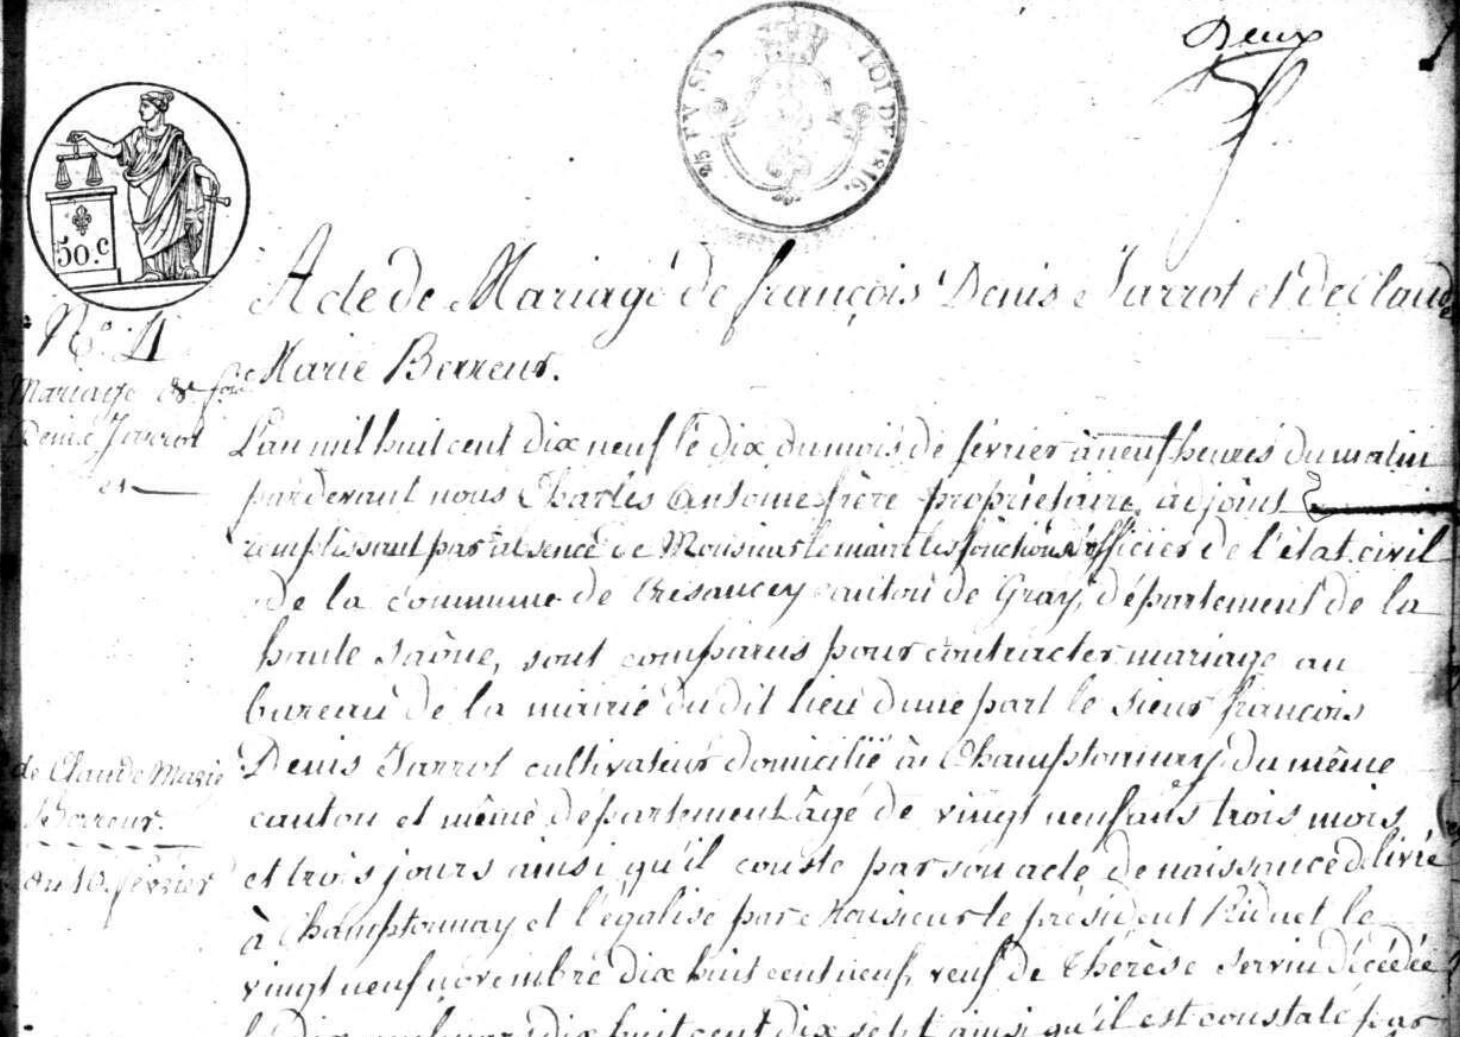 Deux
25 EN SUS
LOI DE 1816.
50.c
Acte de Mariage de françois Denis Jarrot et de Claude
Marie Berreur.
N.o 4
Mariage de f.ois
Denis Jarrot
et
de Claude Marie
Berreur.
du 10. février
L'an mil huit cent dix neuf le dix du mois de février à neuf heures du matin
pardevant nous Charles Antoine frère propriétaire, adjoint
remplissant par absence de Monsieur le maire les fonctions d'officier de l'état civil
de la commune de Cresancey canton de Gray, département de la
haute Saône, sont comparus pour contracter mariage au
bureau de la mairie du dit lieu d'une part le sieur françois
Denis Jarrot cultivateur domicilié à Champtonnay du même
canton et même département âgé de vingt neuf ans trois mois
et trois jours ainsi qu'il conste par son acte de naissance délivré
à Champtonnay et l'égalisé par Monsieur le président le
vingt neuf novembre dix huit cent neuf, veuf de Thérèse Servin décédée
dix huit cent dix sept ainsi qu'il est constaté par